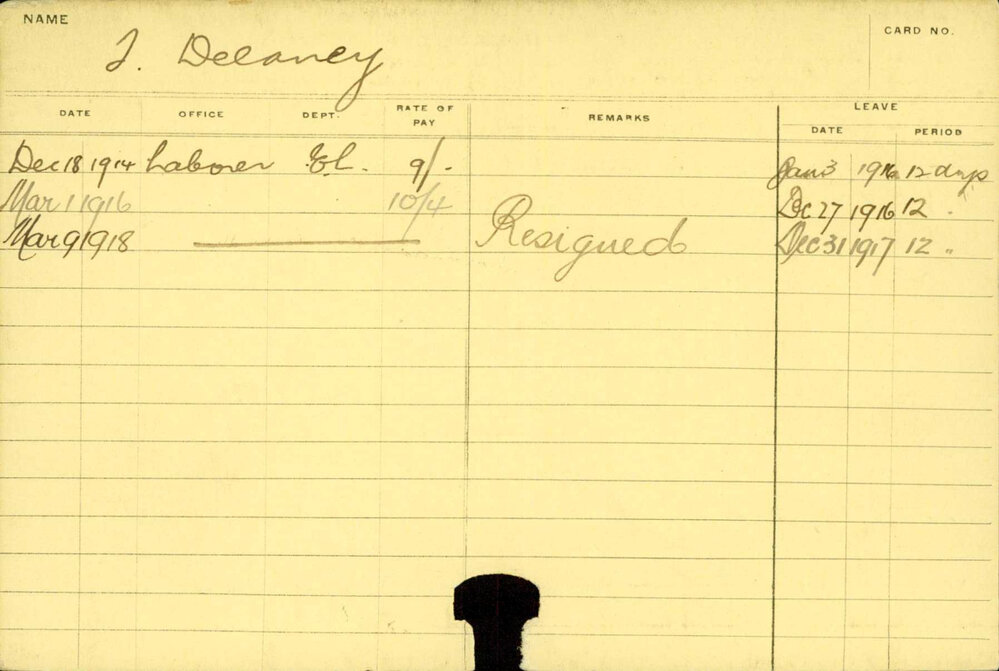 NAME
J. Delaney
CARD NO.
DATE OFFICE DEPT. RATE OF PAY REMARKS LEAVE
DATE PERIOD
Dec 18 1914 Laborer El. 9/- Jan 3 1916 12 days
Mar 1 1916 10/4 Dec 27 1916 12 "
Mar 9 1918 Resigned Dec 31 1917 12 "